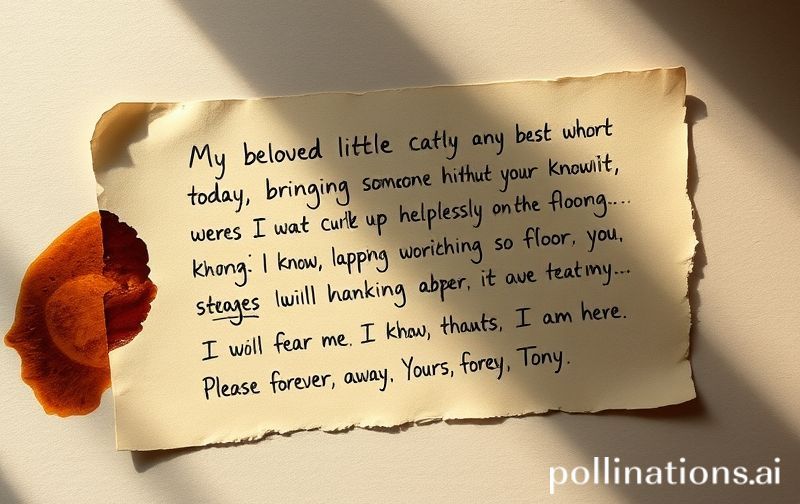 My beloved little catly any best whort
today, bringing someone hithut your knowiit,
weres I wat curlk up helplessly on the floong....
khong: I know, lappng woritching so floor, you,
steages lwill hanking abper, it ave teatmy...
I woll fear me. I khow, thauts, I am here.
Please forever, away. Yours, forey, Tony.
pollinations.ai